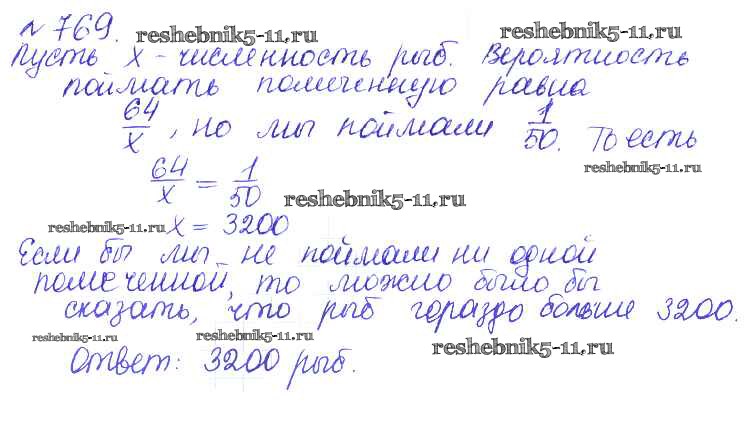 № 769. reshebnik5-11.ru reshebnik5-11.ru
Пусть x - численность рыб. Вероятность
поймать помеченную равна
64/x, но мы поймали 1/50. То есть
reshebnik5-11.ru
64/x = 1/50
reshebnik5-11.ru
reshebnik5-11.ru x = 3200
Если бы мы не поймали ни одной
помеченной, то можно было бы
сказать, что рыб гораздо больше 3200.
reshebnik5-11.ru reshebnik5-11.ru reshebnik5-11.ru
Ответ: 3200 рыб.